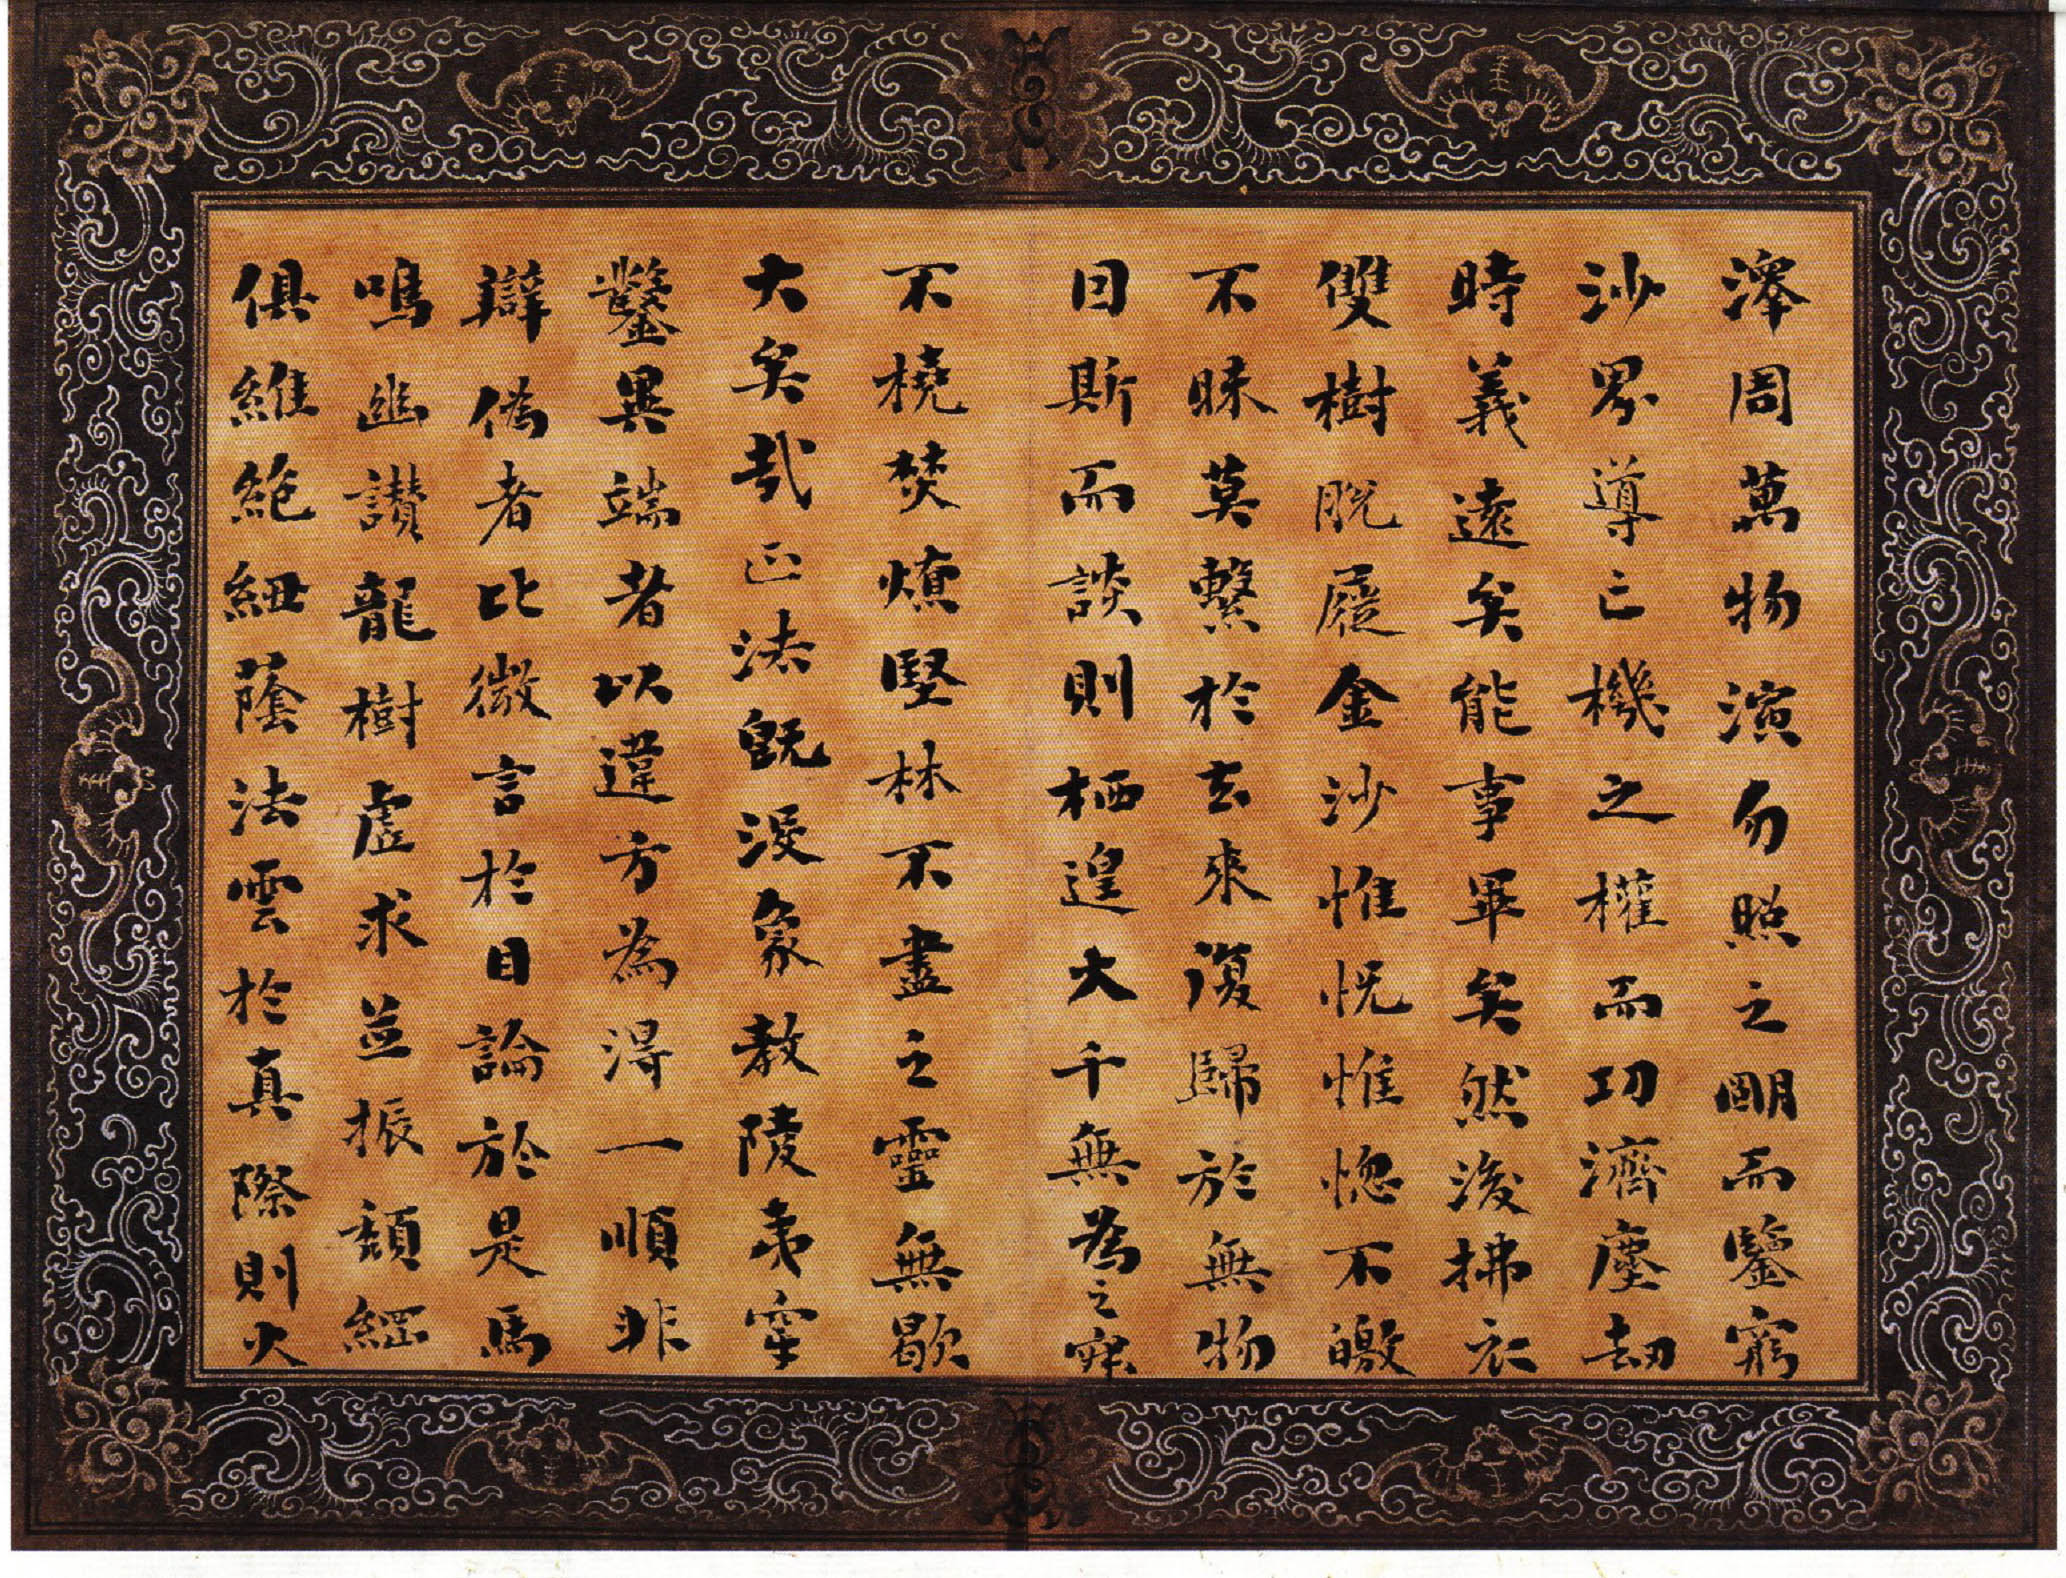 澤周萬物演勿照之明而鑒窮
沙界導亡機之權而功濟塵劫
時義遠矣能事畢矣然後拂衣
雙樹脫屣金沙惟恍惟惚不皦
不昧莫繫於去來復歸於無物
因斯而談則栖遑大千無為之寂
不橈焚燎堅林不盡之靈無歇
大矣哉正法既沒象教陵夷穿
鑿異端者以違方為得一順非
辯偽者比微言於目論於是馬
鳴幽讚龍樹虛求並振頹綱
俱維絕紐蔭法雲於真際則火